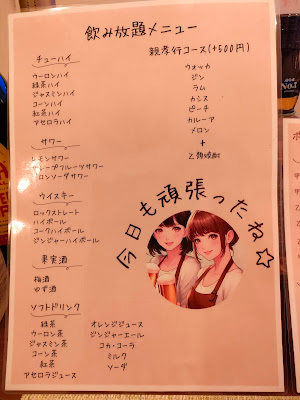 飲み放題メニュー
チューハイ
ウーロンハイ
緑茶ハイ
ジャスミンハイ
コーンハイ
紅茶ハイ
アセロラハイ
サワー
レモンサワー
グレープフルーツサワー
ウイスキー
ロックストレート
ハイボール
コークハイボール
ジンジャーハイボール
果実酒
梅酒
ゆず酒
ソフトドリンク
緑茶
ウーロン茶
ジャスミン茶
コーン茶
紅茶
アセロラジュース
オレンジジュース
ジンジャーエール
コカ・コーラ
ミルク
ソーダ
親孝行コース(+500円)
ウォッカ
ジン
ラム
カシス
ピーチ
カルーア
メロン
+
乙類焼酎
今日も頑張ったね☆
No.1